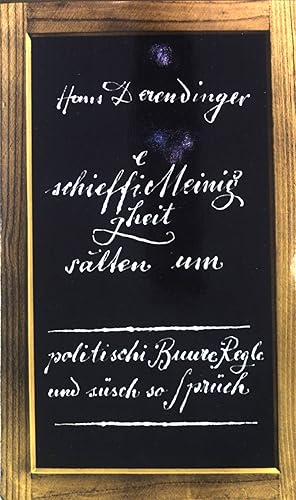 Hans Derendinger
e
schieffi Meinig
gheit
sälten um
politischi Buure Regle
und süsch so Sprüch